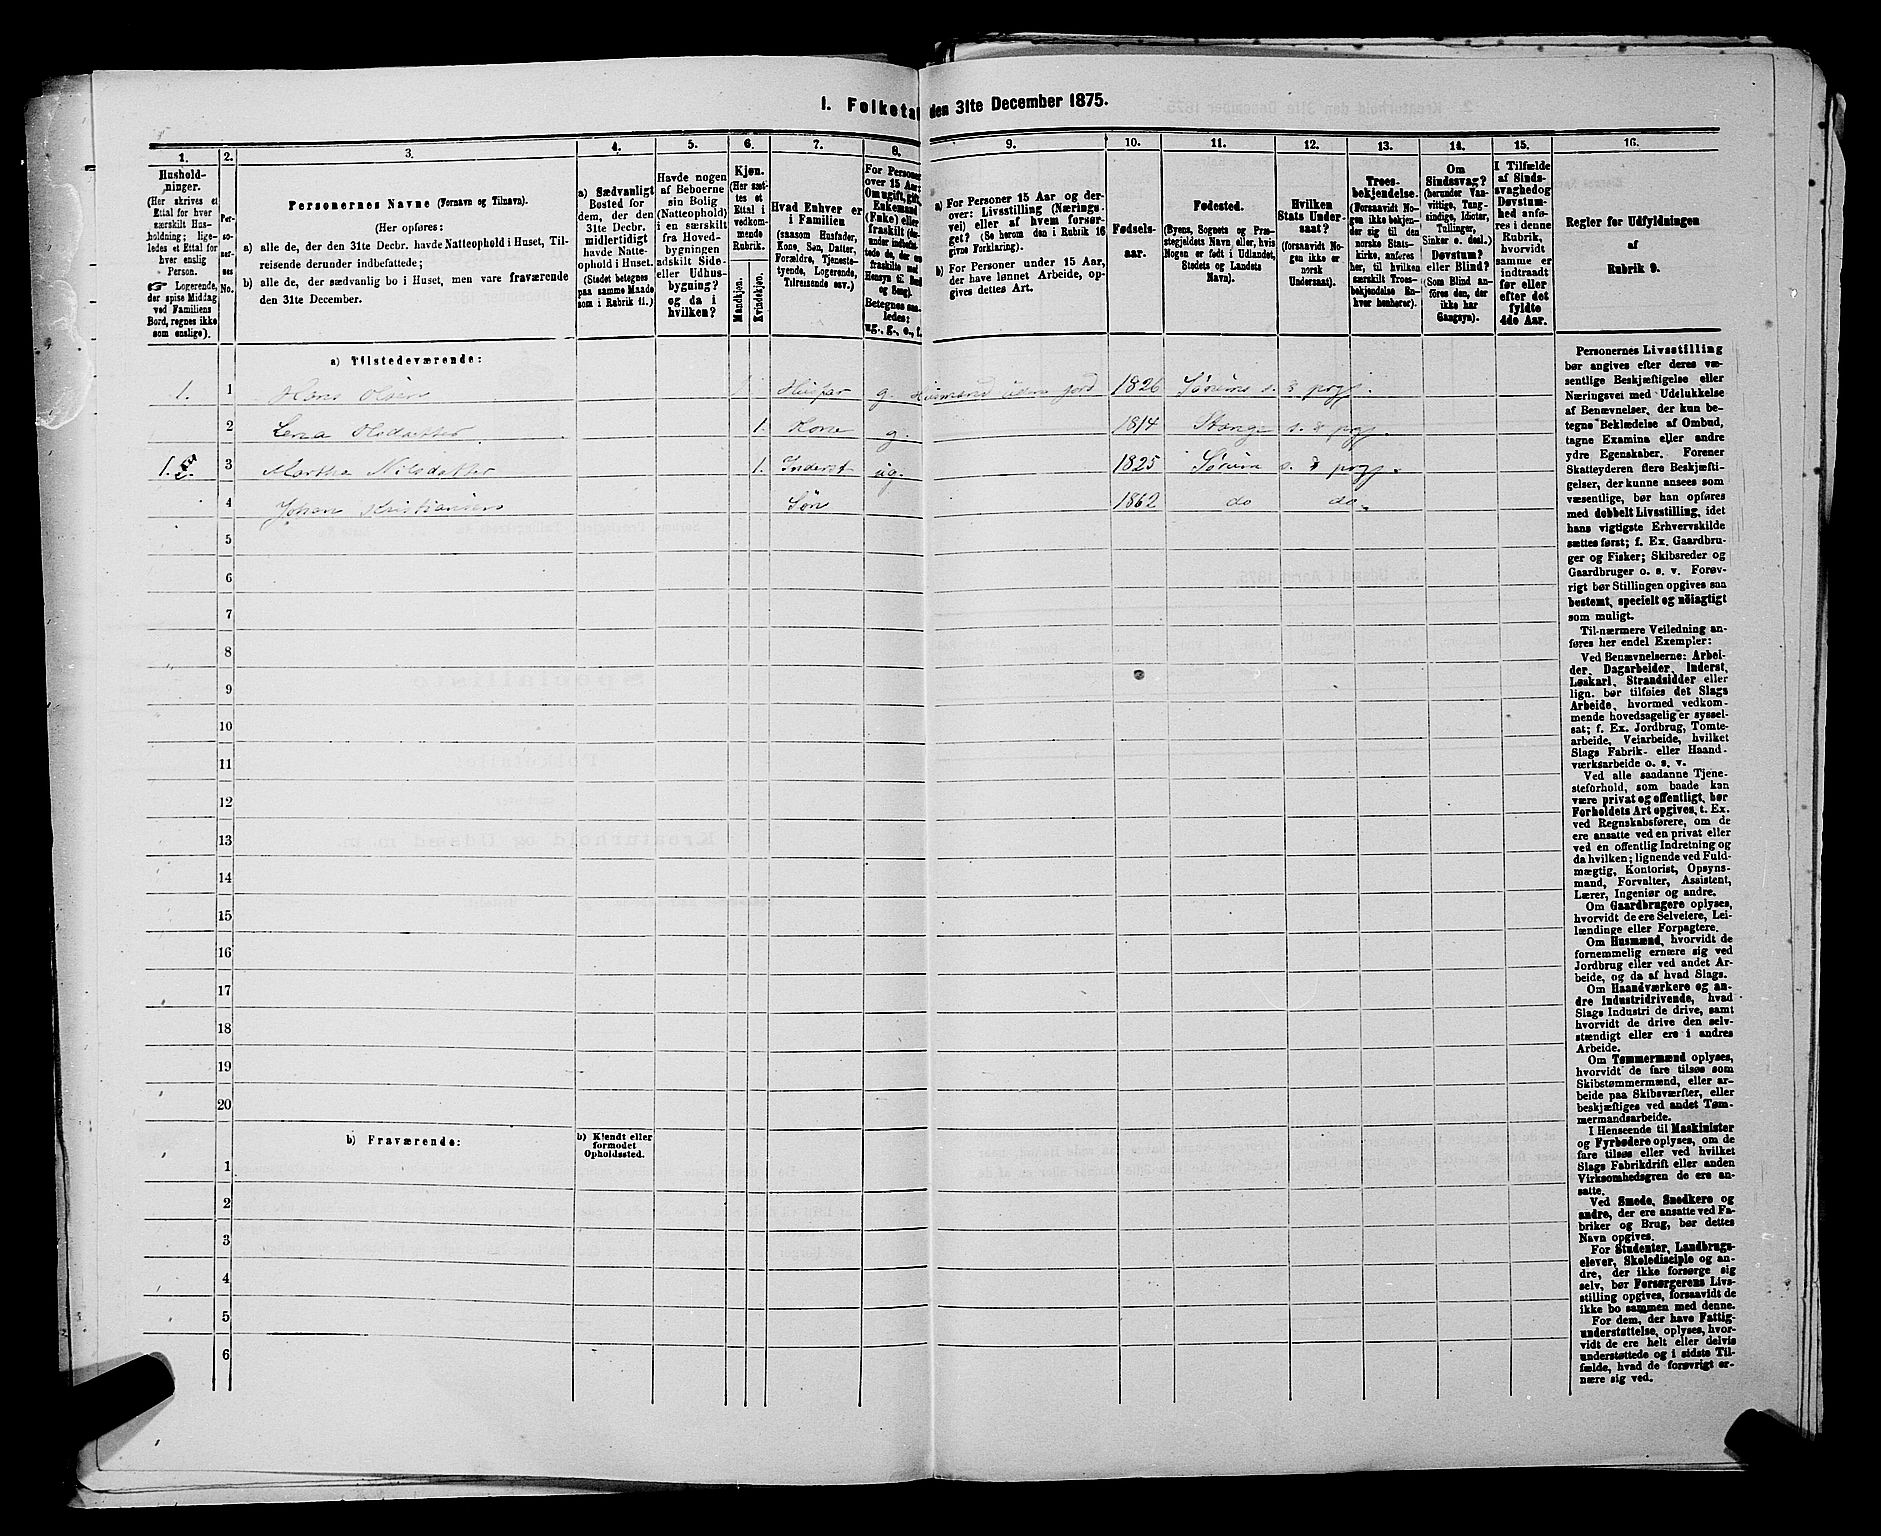 I. Folketal den 31te December 1875.
1. 2. 3. 4. 5. 6. 7. 8. 9. 10. 11. 12. 13. 14. 15. 16.
Hushold-
ninger.
(Her skrives et
Ettal for hver
særskilt Hus-
holdning; lige-
ledes et Ettal for
hver enslig
Person.
☞ Logerende,
der spise Middag
ved Familiens
Bord, regnes ikke
som enslige).
Per-
so-
ner-
nes
No.
Personernes Navne (Fornavn og Tilnavn).
(Her opføres:
a) alle de, der den 31te Decbr. havde Natteophold i Huset, Til-
reisende derunder indbefattede;
b) alle de, der sædvanlig bo i Huset, men vare fraværende
den 31te December.
a) Sædvanligt
Bosted for
dem, der den
31te Decbr.
midlertidigt
havde Natte-
ophold i Huset.
(Stedet betegnes
paa samme Maade
som i Rubrik 11.)
Havde nogen
af Beboerne
sin Bolig
(Natteophold)
i en særskilt
fra Hoved-
bygningen
adskilt Side-
eller Udhus-
bygning?
og da i
hvilken?
Kjøn.
(Her sæt-
tes et
Ettal i
vedkom-
mende
Rubrik.
Mandkjøn.
Kvindekjøn.
Hvad Enhver er
i Familien
(saasom Husfader,
Kone, Søn, Datter,
Forældre, Tjeneste-
tyende, Logerende,
Tilreisende osv.)
For Personer
over 15 Aar:
Om ugift, gift,
Enkemand
(Enke) eller
fraskilt (der-
under indbefat-
tede de, der ere
fraskilte med
Hensyn til Bord
og Seng).
Betegnes saa-
ledes:
ug., g., e., f.
a) For Personer 15 Aar og der-
over: Livsstilling (Nærings-
vei) eller af hvem forsør-
get? (Se herom den i Rubrik 16
givne Forklaring).
b) For Personer under 15 Aar,
der have lønnet Arbeide, op-
gives dettes Art.
Fødsels-
aar.
Fødested.
(Byens, Sognets og Præ-
stegjeldets Navn, eller, hvis
Nogen er født i Udlandet,
Stedets og Landets
Navn).
Hvilken
Stats Under-
saat?
(forsaavidt No-
gen ikke er
norsk
Undersaat).
Troes-
bekjendelse.
(Forsaavidt No-
gen ikke bekjen-
der sig til den
norske Stats-
kirke, anføres
her, til hvilken
særskilt Troes-
bekjendelse En-
hver henhører).
Om
Sindssvag?
(herunder Van-
vittige, Tung-
sindige, Idioter,
Tullinger,
Sinker o. desl.)
Døvstum?
eller Blind?
(Som Blind an-
føres den, der
ikke har
Gangsyn).
I Tilfælde
af Sinds-
svaghed og
Døvstum-
hed anfø-
res i denne
Rubrik,
hvorvidt
samme er
indtraadt
før eller
efter det
fyldte
4de Aar.
Regler for Udfyldningen
af
Rubrik 9.
a) Tilstedeværende:
1. 1 Hans Olsen 1 Husfar g. Husmand uden jord 1826 Sørum s. & prgj.
2 Lena Olsdatter 1. Kone g. 1814 Stange s. & prgj.
1. 3 Martha Nilsdatter 1. Inderst ug. 1825 Sørum s. & prgj.
4 Johan Kristiansen Søn 1862 do do.
5
6
7
8
9
10
11
12
13
14
15
16
17
18
19
20
b) Fraværende:
b) Kjendt eller
formodet
Opholdssted.
1
2
3
4
5
6
Personernes Livsstilling
bør angives efter deres væ-
sentlige Beskjæftigelse eller
Næringsvei med Udelukkelse
af Benævnelser, der kun be-
tegne Beklædelse af Ombud,
tagne Examina eller andre
ydre Egenskaber. Forener
Skatteyderen flere Beskjæfti-
gelser, der kunne ansees som
væsentlige, bør han opføres
med dobbelt Livsstilling, idet
hans vigtigste Erhvervskilde
sættes først; f. Ex. Gaardbru-
ger og Fisker; Skibsreder og
Gaardbruger o. s. v. Forøv-
rigt bør Stillingen opgives saa
bestemt, specielt og nøiagtigt
som muligt.
Til nærmere Veiledning an-
føres her endel Exempler:
Ved Benævnelserne: Arbei-
der, Dagarbeider, Inderst,
Løskarl, Strandsidder eller
lign. bør tilføies det Slags
Arbeide, hvormed vedkom-
mende hovedsagelig er syssel-
sat; f. Ex. Jordbrug, Tomte-
arbeide, Veiarbeide, hvilket
Slags Fabrik- eller Haand-
værksarbeide o. s. v.
Ved alle saadanne Tjene-
steforhold, som baade kan
være privat og offentligt, bør
Forholdets Art opgives, t. Ex.
ved Regnskabsførere, om de
ere ansatte ved en privat eller
ved en offentlig Indretning og
da hvilken; lignende ved Fuld-
mægtig, Kontorist, Opsyns-
mand, Forvalter, Assistent,
Lærer, Ingeniør og andre.
Om Gaardbrugere oplyses,
hvorvidt de ere Selveiere, Lei-
lændinge eller Forpagtere.
Om Husmænd, hvorvidt de
fornemmelig ernære sig ved
Jordbrug eller ved andet Ar-
beide, og da af hvad Slags.
Om Haandværkere og an-
dre industridrivende, hvad
Slags Industri de drive, samt
hvorvidt de drive den selv-
stændigt eller ere i andres
Arbeide.
Om Tømmermænd oplyses,
hvorvidt de fare tilsøs som
Skibstømmermænd, eller ar-
beide paa Skibsværfter, eller
beskjæftiges ved andet Tøm-
mermandsarbeide.
I Henseende til Maskinister
og Fyrbødere oplyses, om de
fare tilsøs eller ved hvilket
Slags Fabrikdrift eller anden
Virksomhedsgren de ere an-
satte.
Ved Smede, Snedkere og
andre, der ere ansatte ved Fa-
briker og Brug, bør dettes
Navn opgives.
For Studenter, Landbrugs-
elever, Skoledisciple og an-
dre, der ikke forsørge sig
selv, bør Forsørgerens Livs-
stilling opgives, forsaavidt de
ikke bo sammen med denne.
For dem, der have Fattig-
understøttelse, oplyses, hvor-
vidt de ere helt eller delvis
understøttede og i sidste Til-
fælde, hvad de forøvrigt er-
nære sig ved.